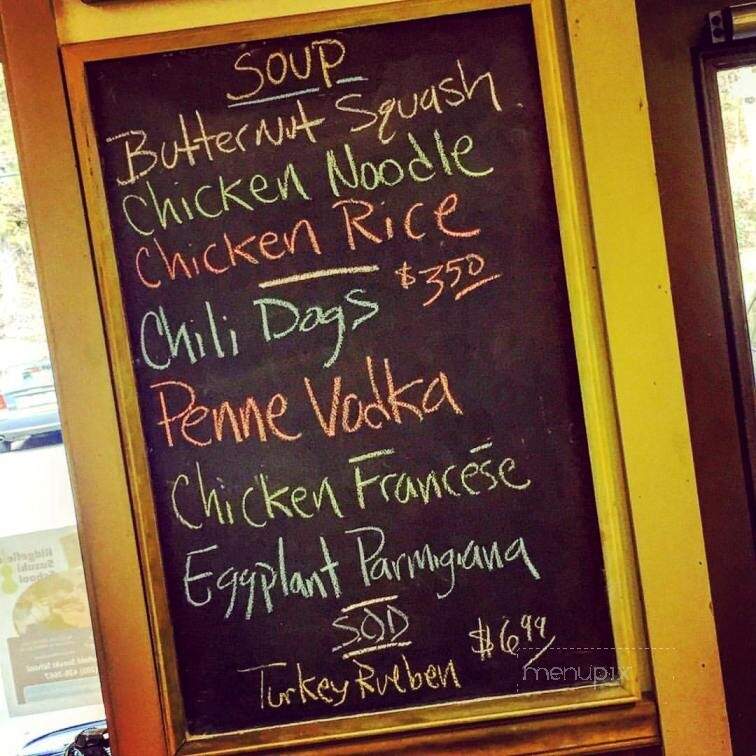 SOUP
Butternut Squash
Chicken Noodle
Chicken Rice
Chili Dogs $3.50
Penne Vodka
Chicken Francese
Eggplant Parmigiana
SOD
Turkey Rueben $6.99
menupix
Ridgefield
Suzuki
School